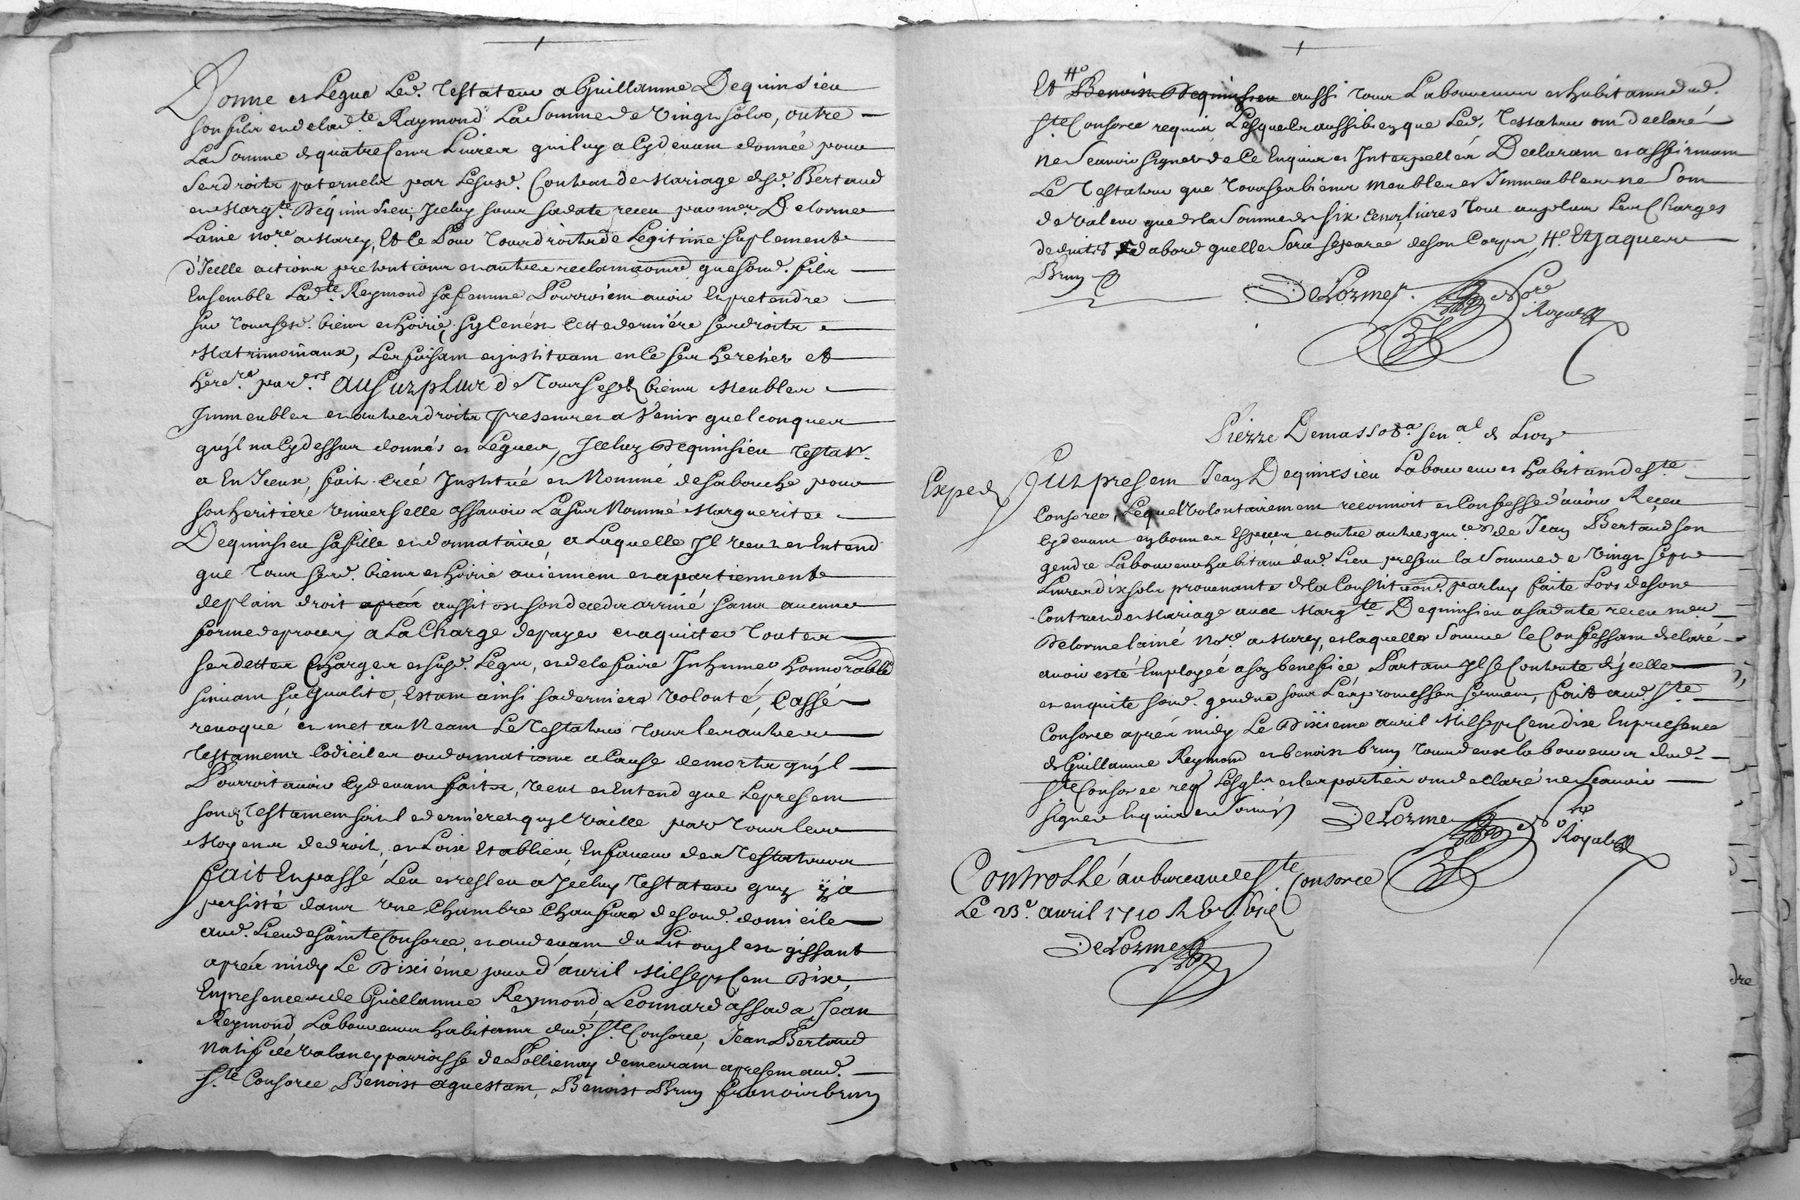 Donne et Legue Led. Testateur a Guillaume Dequinsieu
son fils et de lad.te Raymond La Somme de Vingt sols, outre
La Somme de quatre cent Livres qu'il luy a cy devant donnée pour
ses droits paternels par Lesusd. Contrat de Mariage desd. Bertaud
et Marg.te Dequinsieu, Iceluy sous sa date receu par me. Delorme
Lainé no.re a Marcy, Et ce Pour tous droits de Legitime suplement
d'Icelle actions pretentions et autres reclamaons que sond. fils
Ensemble Lad.te Reymond sa femme Pourroient avoir Et pretendre
sur tous sesd. biens et hoirie, sy ce n'est cette derniére ses droits
Matrimoniaux, Les faisant et instituant en ce ses heretiers et
here.rs par.ers Au Surplus de Tous ses biens Meubles
Immeubles et autres droits presents et a Venir quelconques
qu'jl n'a cy dessus donnés et Legués, Jceluy Dequinsieu Testat.r
a En Iceux, fait créé Jnstitué et Nommé de sa bouche pour
son heritiere universelle assavoir La sus Nommé Marguerite
Dequinsieu sa fille et donnataire, a Laquelle Jl veut et Entend
que Tous sesd. biens et hoirie aviennent et apartiennent
de plain droit après aussitost son deceds arrivé sans aucune
forme de proces, a La Charge de payer et aquiter Toutes
ses dettes Charges et susd. Legats, et de le faire Inhumer honnorablt
suivant sa Qualité, Estant ainsi sa derniere volonté, Cassé
revoque et met au Neant Le Testateur Tous les autres
Testaments Codiciles ou donnations a Cause de mort qu'jl
Pourroit avoir cy devant faits, Veut et Entend que Le present
sond. Testament soit Le dernier et qu'jl vaille par Tous les
Moyens de droit, et Loix Etablies En faveur des Testateurs
fait Et passé Leu et releu a Jceluy Testateur quy y a
persisté dans une Chambre Chaufure de sond. domicile
aud. Lieu de Sainte Consorce, et au devant du Lit ou jl est gissant
aprés midy Le Dixiéme jour d'avril Mil sept Cent Dix,
En presence de Guillaume Reymond, Leonnard assada, Jean
Reymond Laboureurs habitants dud. S.te Consorce, Jean Bertaud
Natif de valancy parroisse de Pollienay demeurant a present aud.
S.te Consorce Benoist aguestant, Benoist Brun francois brun
Et #e Benoist Dequinsieu aussi Tous Laboureurs et habitants dud.
S.te Consorce requis Lesquels aussi bien que Led. Testateur ont declaré
ne Scavoir signer de ce Enquis et Interpellés Declarant et affirmant
Le Testateur que Tous ses biens meubles et Immeubles ne sont
de valeur que de la Somme de six cent livres Tout au plus Les Charges
deduites d'abord qu'elle Sera separée de son Corps, #e Et Jaques
Brun
DeLorme no.re
Royal
Pierre Demasso sen.al de Lion
Exped.
Fut present Jean Dequinsieu Laboureur habitant de S.te
Consorce, Lequel volontairement reconnoit et Confesse d'avoir Receu
cy devant en bonnes Especes et outre autres quit.ces de Jean Bertaud son
gendre Laboureur habitant dud. Lieu present la Somme de Vingt sept
Livres dix sols provenants de la Constituon. par luy faite Lors de son
Contrat de Mariage avec Marg.te Dequinsieu a sa date receu me
Delorme lainé No.re a Marcy, et laquelle Somme le Confessant declaré
avoir esté Employée a son benefice Partant Jl se Contente d'jcelle
et en quite sond. gendre sous Les promesses serment, fait aud. S.te
Consorce aprés midy Le Dixieme avril Mil sept Cent dix En presence
de Guillaume Reymond et benoist brun Tous deux laboureurs dud.
S.te Consorce req. Lesq.ls et les parties ont declaré ne Scavoir
signer Enquis et Sommés
DeLorme no.re
Royal
Controllé au bureau de S.te Consorce
Le 23.e avril 1710
DeLorme